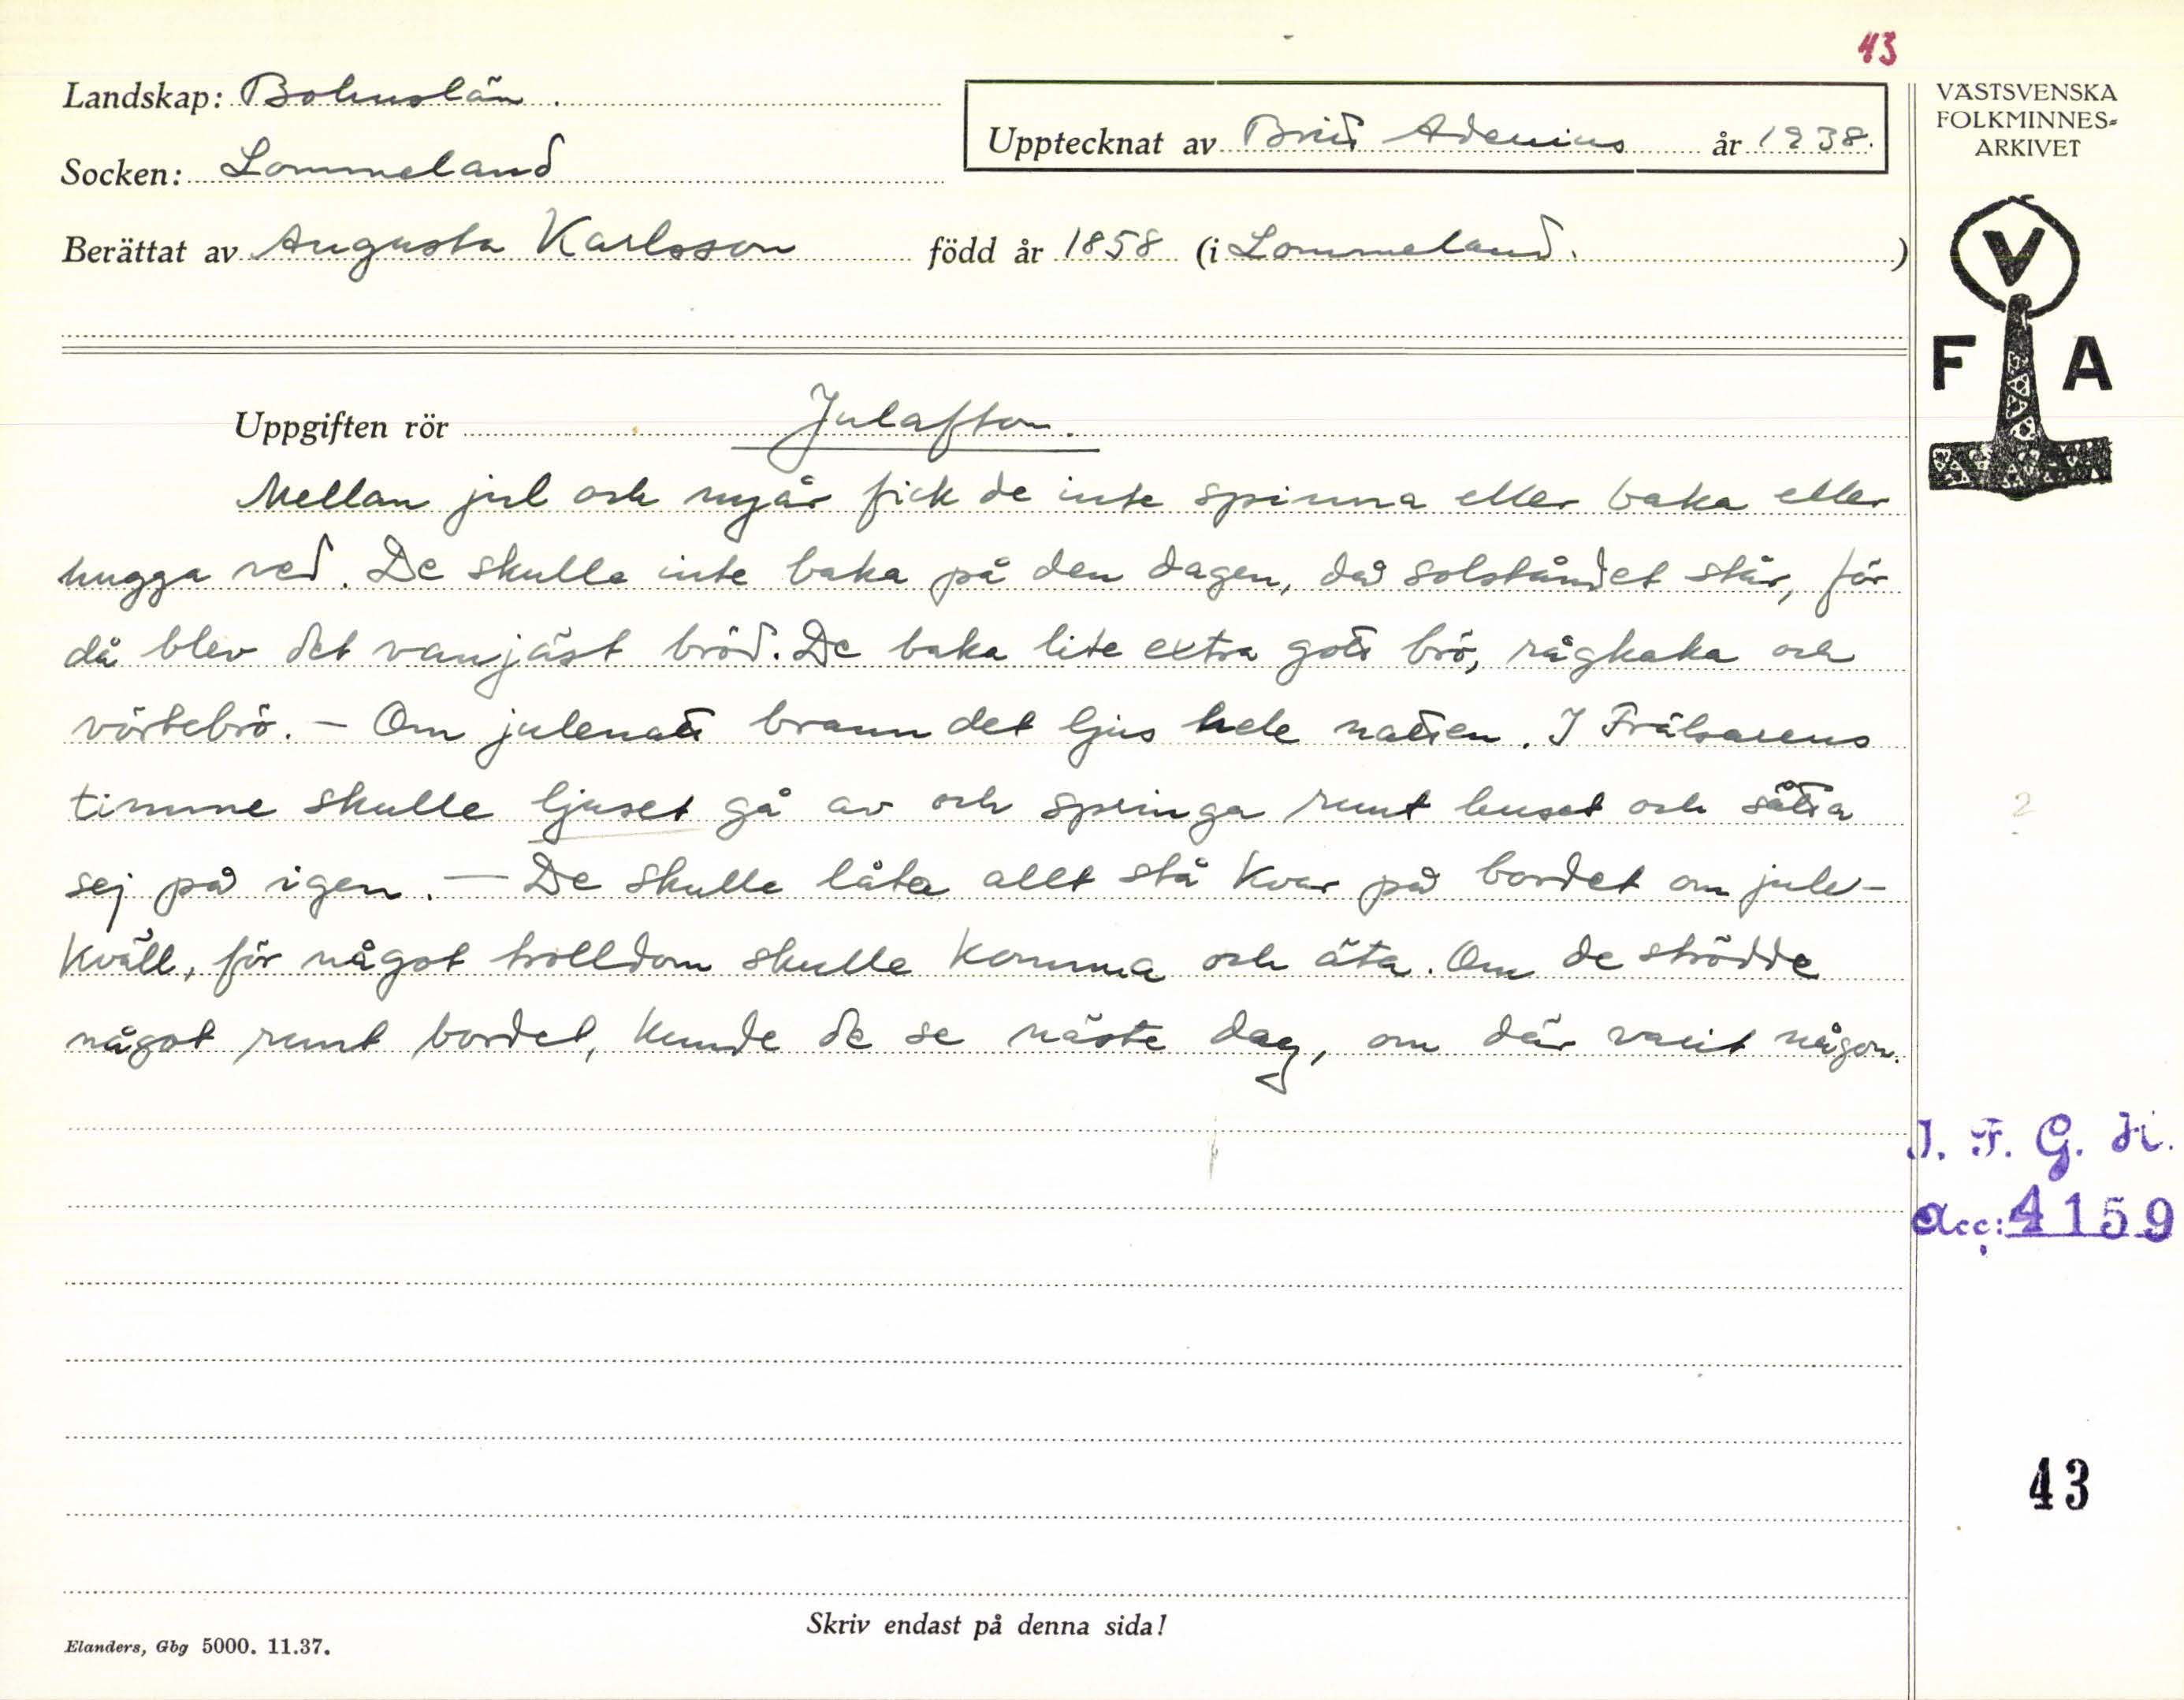 43
Landskap: Bohuslän
Upptecknat av Britt Adenius år 1938.
VÄSTSVENSKA
FOLKMINNES-
ARKIVET
Socken: Lommeland
Berättat av Augusta Karlsson född år 1858 (i Lommeland.)
V
F A
Uppgiften rör Julafton.
Mellan jul och nyår fick de inte spinna eller baka eller
hugga ved. De skulle inte baka på den dagen, då solståndet står, för
då blev det vanjäst bröd. De baka lite extra gott brö, rågkaka och
vörtebrö. – Om julenatt brann det ljus hele natten. I Frälsarens
timme skulle ljuset gå av och springa runt huset och sätta
2
sej på igen. – De skulle låta allt stå kvar på bordet om jule-
kväll, för något trolldom skulle komma och äta. Om de strödde
något runt bordet, kunde de se näste dag, om där varit någon.
I. F. G. H.
Acc: 4159
43
Skriv endast på denna sida!
Elanders, Gbg 5000. 11.37.